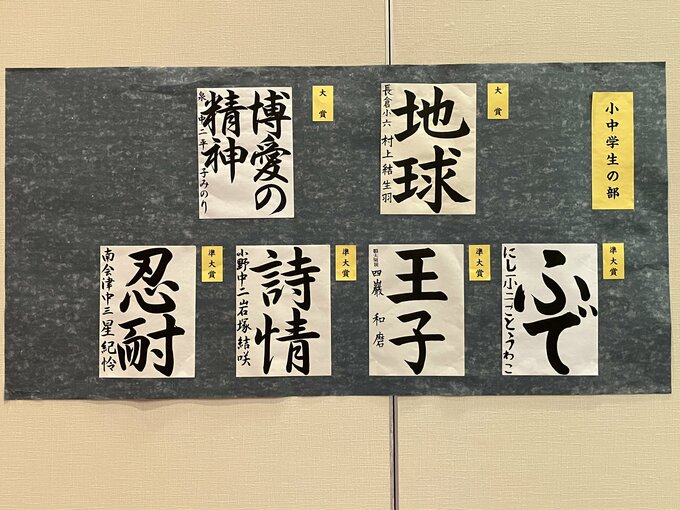 小中学生の部
大賞
地球
長倉小六 村上結生羽
大賞
博愛の
精神
泉 中二 平 子みのり
準大賞
ふで
にし小二 ごとうわこ
準大賞
王子
四 巌 和磨
準大賞
詩情
小野中二 岩塚結咲
準大賞
忍耐
南会津中三 星 紀怜